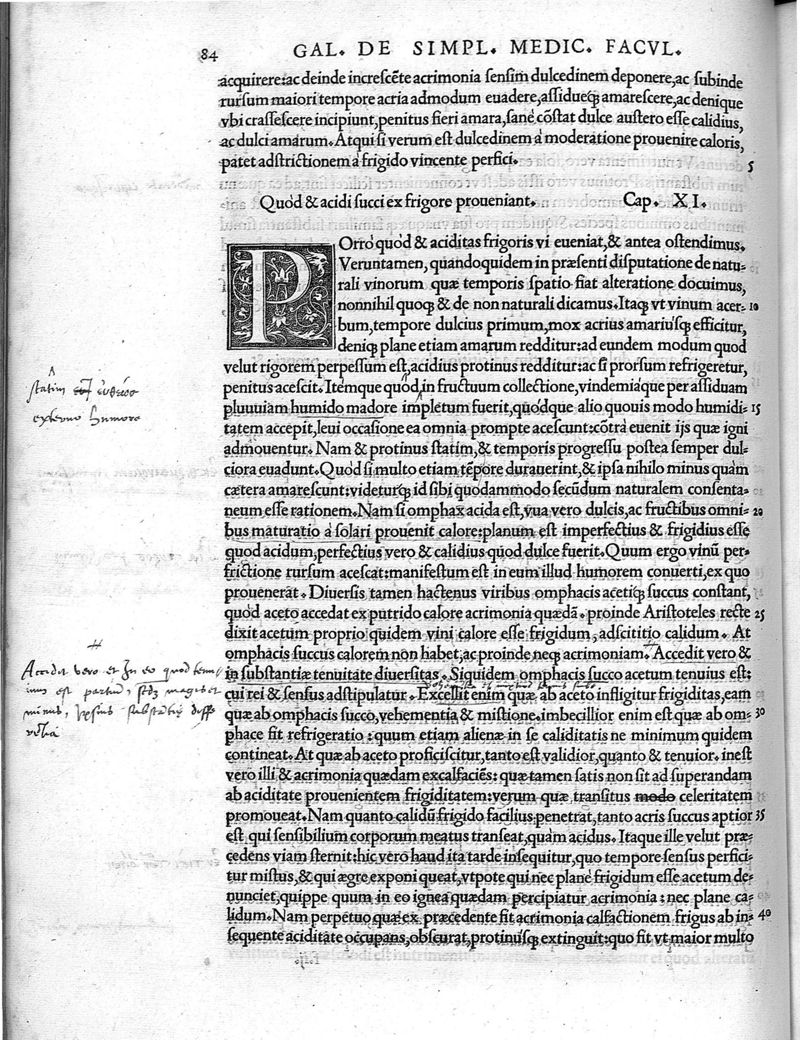 84 GAL. DE SIMPL. MEDIC. FACVL.
acquirere:ac deinde increscẽte acrimonia sensim dulcedinem deponere,ac subinde
rursum maiori tempore acria admodum euadere,assidueq́; amarescere,ac denique
vbi crassescere incipiunt,penitus fieri amara,sanè cõstat dulce austero esse calidius,
ac dulci amarum. Atqui si verum est dulcedinem à moderatione prouenire caloris,
patet adstrictionem à frigido vincente perfici. 5
Quòd & acidi succi ex frigore proueniant. Cap. XI.
POrrò quòd & aciditas frigoris vi eueniat,& antea ostendimus.
Veruntamen, quandoquidem in præsenti disputatione de natu-
rali vinorum quæ temporis spatio fiat alteratione docuimus,
nonnihil quoq; & de non naturali dicamus. Itaq; vt vinum acer- 10
bum,tempore dulcius primum,mox acrius amariúsq; efficitur,
deniq; plane etiam amarum redditur:ad eundem modum quod
velut rigorem perpessum est,acidius protinus redditur:ac si prorsum refrigeretur,
penitus acescit. Itémque quòd in fructuum collectione,vindemiáque per assiduam
pluuuiam humido madore impletum fuerit,quódque alio quouis modo humidi- 15
tatem accepit,leui occasione ea omnia prompte acescunt:cõtrà euenit ijs quæ igni
admouentur. Nam & protinus statim,& temporis progressu postea semper dul-
ciora euadunt. Quòd si multo etiam tẽpore durauerint,& ipsa nihilo minus quàm
cætera amarescunt:videturq́; id sibi quodammodo secũdum naturalem consenta-
neum esse rationem. Nam si omphax acida est,vua vero dulcis,ac fructibus omni- 20
bus maturatio à solari prouenit calore:planum est imperfectius & frigidius esse
quod acidum,perfectius vero & calidius quod dulce fuerit. Quum ergo vinũ per-
frictione rursum acescat:manifestum est in eum illud humorem conuerti,ex quo
prouenerat. Diuersis tamen hactenus viribus omphacis acetiq́; succus constant,
quòd aceto accedat ex putrido calore acrimonia quædã. proinde Aristoteles recte 25
dixit acetum proprio quidem vini calore esse frigidum, adscititio calidum. At
omphacis succus calorem non habet,ac proinde neq; acrimoniam. Accedit vero &
in substantiæ tenuitate diuersitas. Siquidem omphacis succo acetum tenuius est:
cui rei & sensus adstipulatur. Excellit enim quæ ab aceto infligitur frigiditas,eam
quæ ab omphacis succo,vehementia & mistione.imbecillior enim est quæ ab om- 30
phace fit refrigeratio:quum etiam alienæ in se caliditatis ne minimum quidem
contineat. At quæ ab aceto proficiscitur,tanto est validior,quanto & tenuior. inest
vero illi & acrimonia quædam excalfaciẽs: quæ tamen satis non sit ad superandam
ab aciditate prouenientem frigiditatem:verum quæ transitus modo celeritatem
promoueat. Nam quanto calidũ frigido facilius penetrat,tanto acris succus aptior 35
est, qui sensibilium corporum meatus transeat,quàm acidus. Itaque ille velut præ-
cedens viam sternit:hic vero haud ita tarde insequitur,quo tempore sensus perfici-
tur mistus,& qui ægre exponi queat,vtpote qui nec planè frigidum esse acetum de-
nunciet,quippe quum in eo ignea quædam percipiatur acrimonia:nec plane ca-
lidum. Nam perpetuo quæ ex præcedente fit acrimonia calfactionem frigus ab in- 40
sequente aciditate occupans,obscurat,protinúsq; extinguit:quo fit vt maior multo
statim
externo humore
Accedit vero et in eo quod tenu